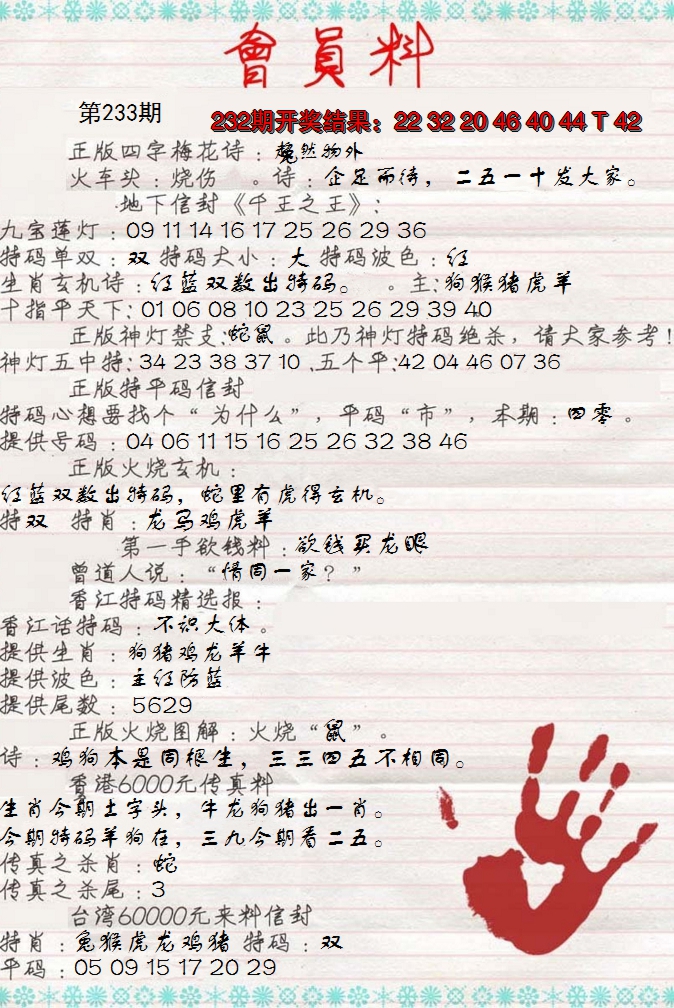 會員料
第233期
232期开奖结果：22 32 20 46 40 44 T 42
正版四字梅花诗：魏然物外
火车头：烧伤 。诗：企足而待，二五一十发大家。
地下信封《千王之王》：
九宝莲灯：09 11 14 16 17 25 26 29 36
特码单双：双 特码大小：大 特码波色：红
生肖玄机诗：红蓝双数出特码。 。主：狗猴猪虎羊
十指平天下：01 06 08 10 23 25 26 29 39 40
正版神灯禁支：蛇鼠。此乃神灯特码绝杀，请大家参考！
神灯五中特：34 23 38 37 10 .五个平：42 04 46 07 36
正版特平码信封
特码心想要找个“为什么”，平码“市”，本期：四零。
提供号码：04 06 11 15 16 25 26 32 38 46
正版火烧玄机：
红蓝双数出特码，蛇里有虎得玄机。
特双 特肖：龙马鸡虎羊
第一手欲钱料：欲钱买龙眼
曾道人说：“情同一家？”
香江特码精选报：
香江话特码：不识大体。
提供生肖：狗猪鸡龙羊牛
提供波色：主红防蓝
提供尾数：5629
正版火烧图解：火烧“鼠”。
诗：鸡狗本是同根生，三三四五不相同。
香港6000元传真料
生肖今期土字头，牛龙狗猪出一肖。
今期特码羊狗在，三九今期看二五。
传真之杀肖：蛇
传真之杀尾：3
台湾60000元来料信封
特肖：兔猴虎龙鸡猪 特码：双
平码：05 09 15 17 20 29